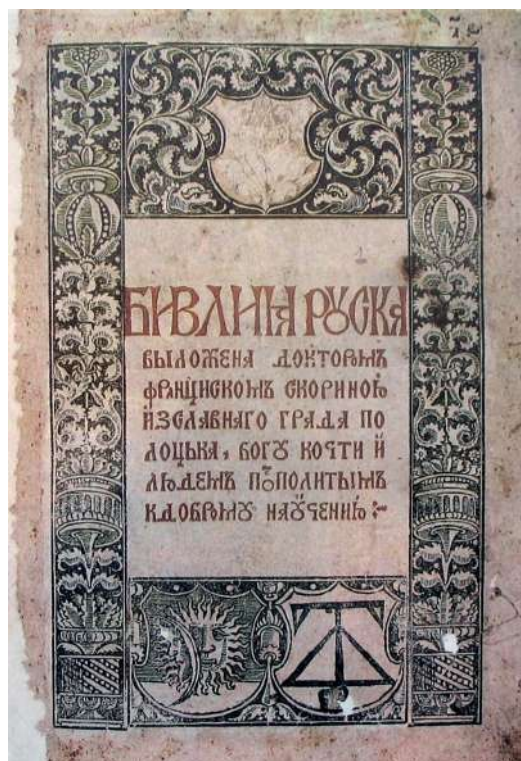 БИВЛИꙖ РꙊСКА
ВЫЛОЖЕНА ДОКТОРОМЪ
ФРАНЦИСКОМЪ СКОРИНОЮ
ИЗСЛАВНАГО ГРАДА ПО
ЛОЦЬКА, БОГꙊ КОЧТИ И
ЛЮДЕМЪ ПОСПОЛИТЫМЪ
КДОБРОМꙊ НАꙊЧЕНИЮ :~